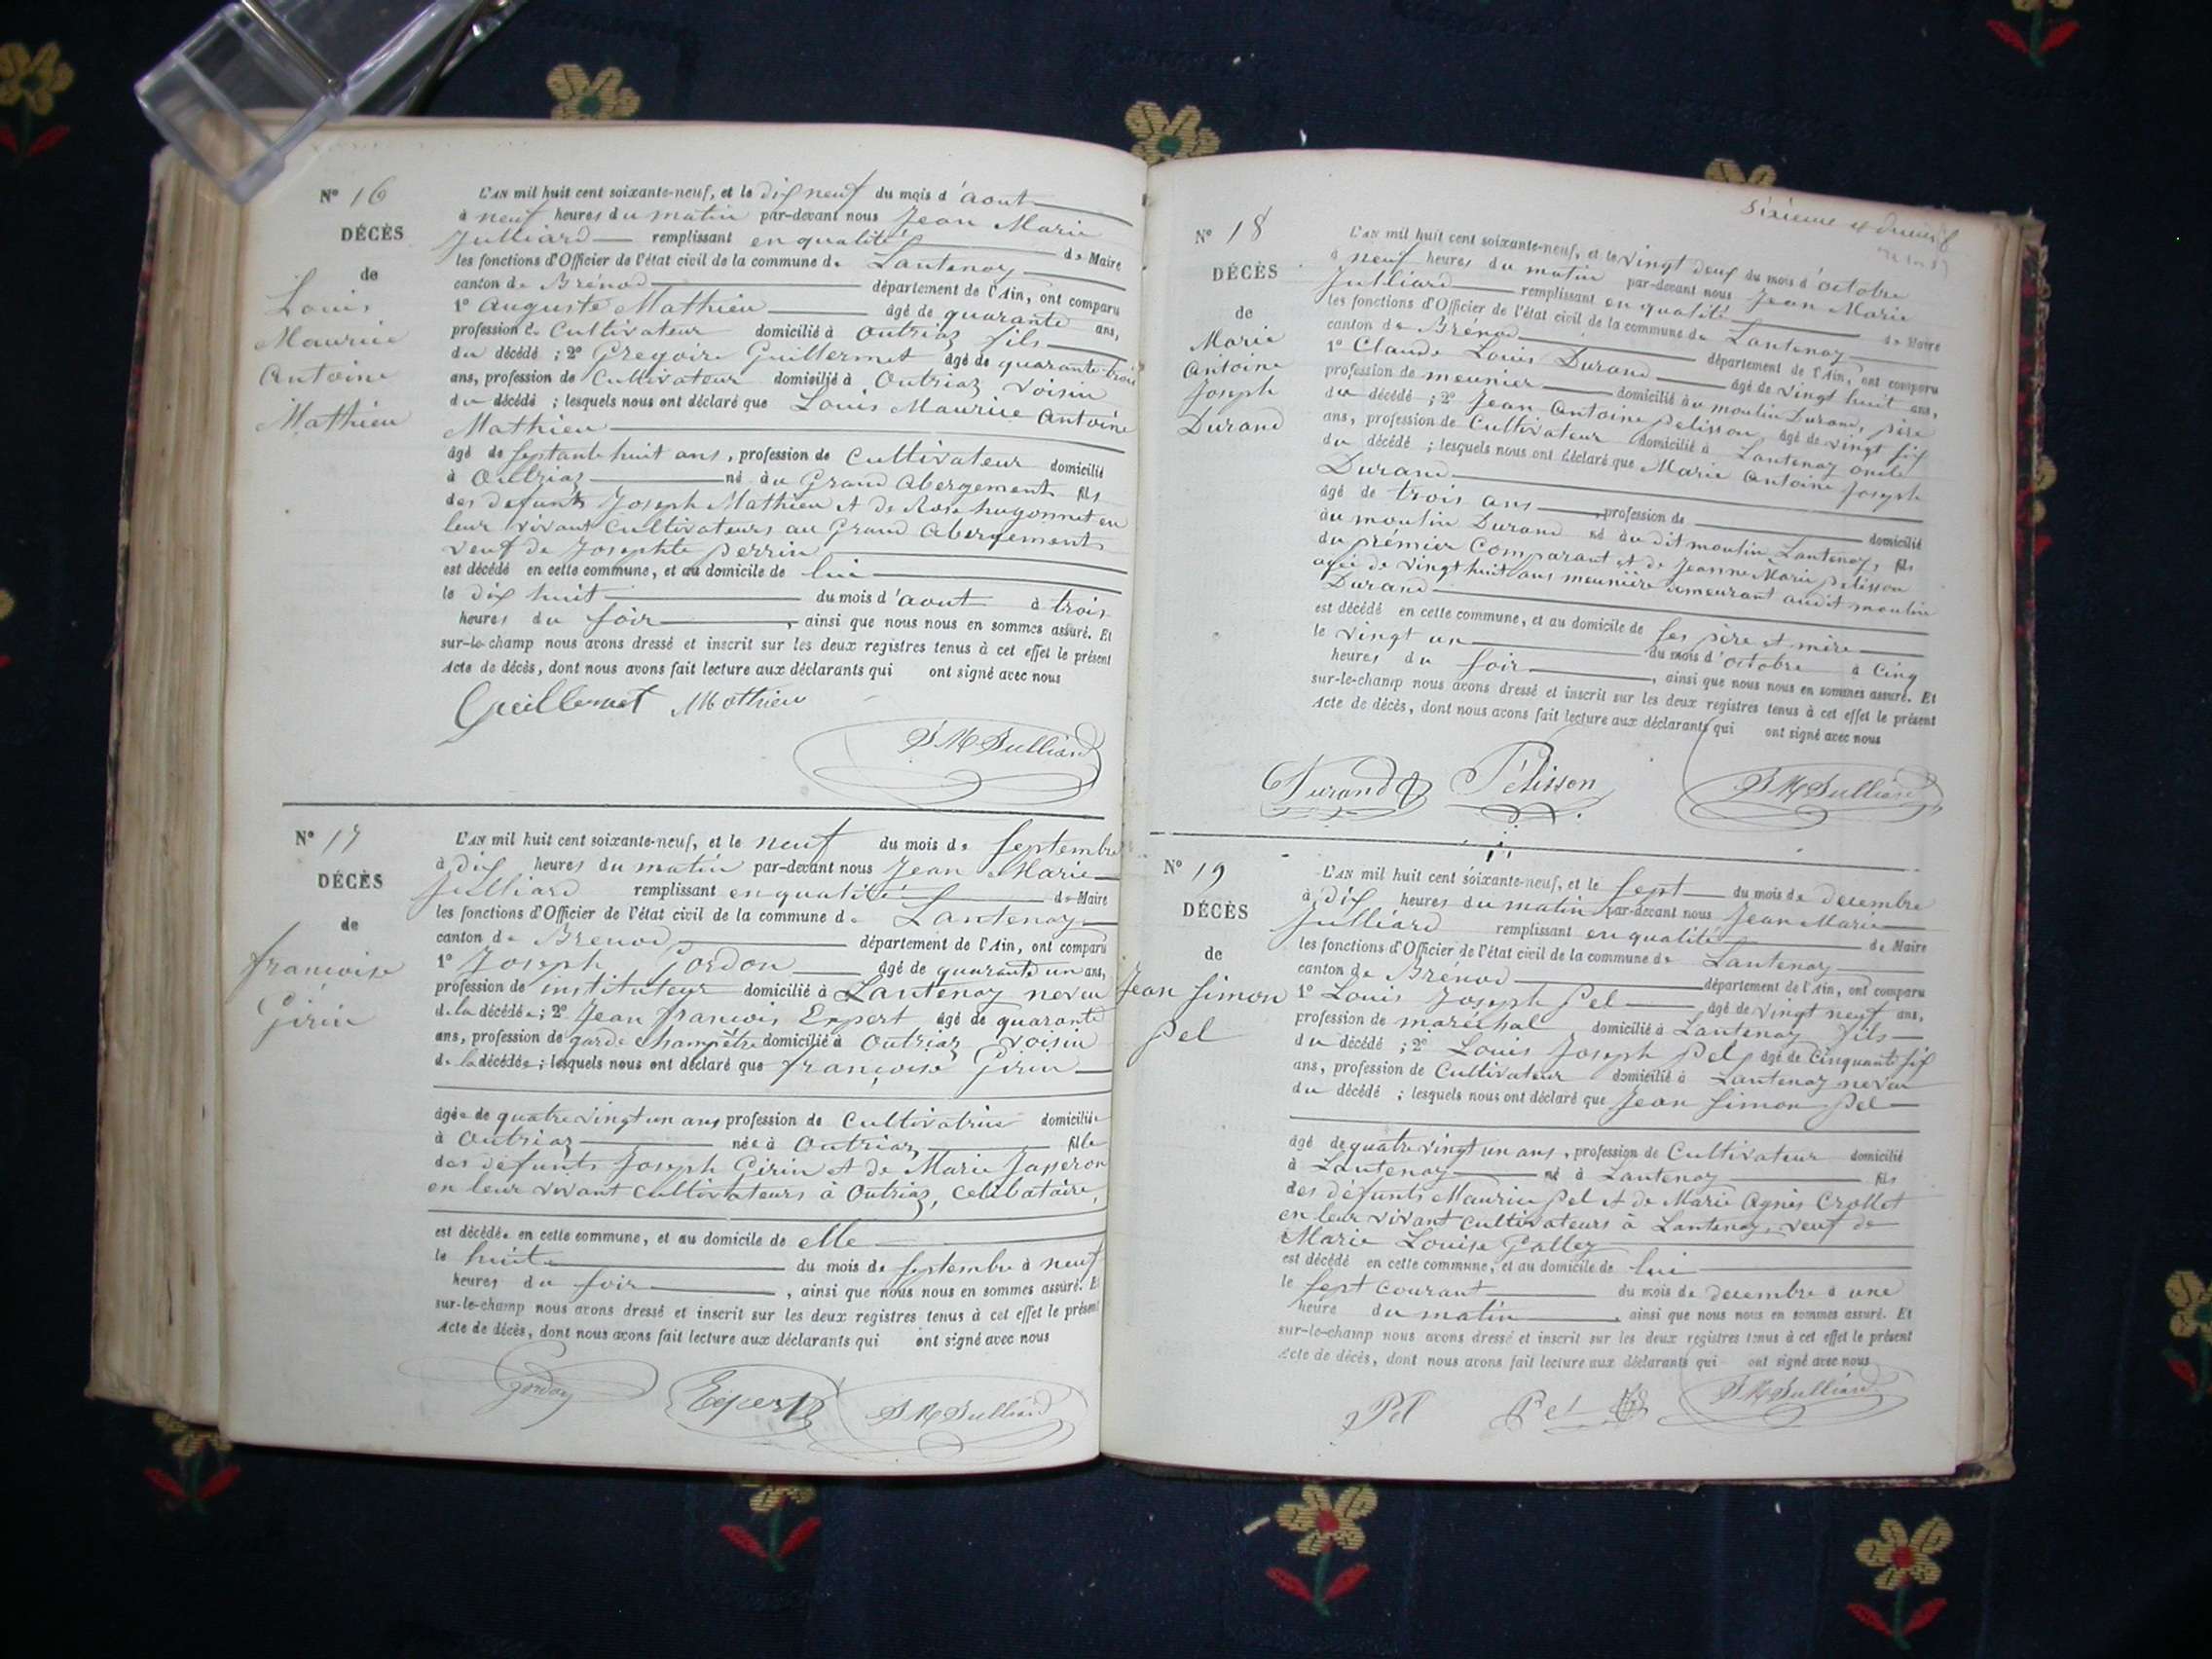 N° 16
DÉCÈS
de
Louis
Maurice
Antoine
Mathieu
L'AN mil huit cent soixante-neuf, et le dix neuf du mois d'aout
à neuf heures du matin par-devant nous Jean Marie
Julliard remplissant en qualité de Maire
les fonctions d'Officier de l'état civil de la commune de Lantenay
canton de Brénod département de l'Ain, ont comparu
1° Auguste Mathieu âgé de quarante ans,
profession de Cultivateur domicilié à Outriaz fils
du décédé ; 2° Gregoire Guillermet âgé de quarante trois
ans, profession de Cultivateur domicilié à Outriaz voisin
du décédé ; lesquels nous ont déclaré que Louis Maurice Antoine
Mathieu
âgé de septante huit ans, profession de Cultivateur domicilié
à Outriaz né au Grand Abergement fils
des defunts Joseph Mathieu et de Rose hugonnet en
leur vivant cultivateurs au Grand Abergement
veuf de Josephte perrin
est décédé en cette commune, et au domicile de lui
le dix huit du mois d'aout à trois
heures du soir, ainsi que nous nous en sommes assuré. Et
sur-le-champ nous avons dressé et inscrit sur les deux registres tenus à cet effet le présent
Acte de décès, dont nous avons fait lecture aux déclarants qui ont signé avec nous
Guillermet Mathieu
J M Julliard
N° 17
DÉCÈS
de
françoise
Girin
L'AN mil huit cent soixante-neuf, et le neuf du mois de septembre
à dix heures du matin par-devant nous Jean Marie
Julliard remplissant en qualité de Maire
les fonctions d'Officier de l'état civil de la commune de Lantenay
canton de Brenod département de l'Ain, ont comparu
1° Joseph Gordon âgé de quarante un ans,
profession de instituteur domicilié à Lantenay neveu
de la décédée ; 2° Jean françois Expert âgé de quarante
ans, profession de garde champêtre domicilié à Outriaz voisin
de la décédée ; lesquels nous ont déclaré que françoise Girin
âgée de quatre vingt un ans profession de Cultivatrice domiciliée
à Outriaz née à Outriaz fille
des défunts Joseph Girin et de Marie Jasseron
en leur vivant cultivateurs à Outriaz, célibataire,
est décédée en cette commune, et au domicile de elle
le huit du mois de septembre à neuf
heures du soir, ainsi que nous nous en sommes assuré. Et
sur-le-champ nous avons dressé et inscrit sur les deux registres tenus à cet effet le présent
Acte de décès, dont nous avons fait lecture aux déclarants qui ont signé avec nous
Gordon Expert J M Julliard
Sixieme et dernier f
N° 18
DÉCÈS
de
Marie
Antoine
Joseph
Durand
L'AN mil huit cent soixante-neuf, et le vingt deux du mois d'octobre
à neuf heures du matin par-devant nous Jean Marie
Julliard remplissant en qualité de Maire
les fonctions d'Officier de l'état civil de la commune de Lantenay
canton de Brénod département de l'Ain, ont comparu
1° Claude Louis Durand âgé de vingt huit ans,
profession de meunier domicilié au moulin Durand, père
du décédé ; 2° Jean Antoine pelisson âgé de vingt six
ans, profession de Cultivateur domicilié à Lantenay oncle
du décédé ; lesquels nous ont déclaré que Marie Antoine Joseph
Durand
âgé de trois ans, profession de domicilié
au moulin Durand né au dit moulin Lantenay, fils
du prémier comparant et de Jeanne Marie pelisson
agée de vingt huit ans meunière demeurant audit moulin
Durand
est décédé en cette commune, et au domicile de ses père et mère
le vingt un du mois d'octobre à cinq
heures du soir, ainsi que nous nous en sommes assuré. Et
sur-le-champ nous avons dressé et inscrit sur les deux registres tenus à cet effet le présent
Acte de décès, dont nous avons fait lecture aux déclarants qui ont signé avec nous
Durand Pélisson J M Julliard
N° 19
DÉCÈS
de
Jean Simon
Pel
L'AN mil huit cent soixante-neuf, et le sept du mois de decembre
à dix heures du matin par-devant nous Jean Marie
Julliard remplissant en qualité de Maire
les fonctions d'Officier de l'état civil de la commune de Lantenay
canton de Brénod département de l'Ain, ont comparu
1° Louis Joseph Pel âgé de vingt neuf ans,
profession de maréchal domicilié à Lantenay fils
du décédé ; 2° Louis Joseph Pel âgé de cinquante six
ans, profession de Cultivateur domicilié à Lantenay neveu
du décédé ; lesquels nous ont déclaré que Jean Simon Pel
âgé de quatre vingt un ans, profession de Cultivateur domicilié
à Lantenay né à Lantenay fils
des défunts Maurice Pel et de Marie Agnès Crollet
en leur vivant cultivateurs à Lantenay, veuf de
Marie Louise Galley
est décédé en cette commune, et au domicile de lui
le sept courant du mois de decembre à une
heure du matin, ainsi que nous nous en sommes assuré. Et
sur-le-champ nous avons dressé et inscrit sur les deux registres tenus à cet effet le présent
Acte de décès, dont nous avons fait lecture aux déclarants qui ont signé avec nous
Pel Pel J M Julliard